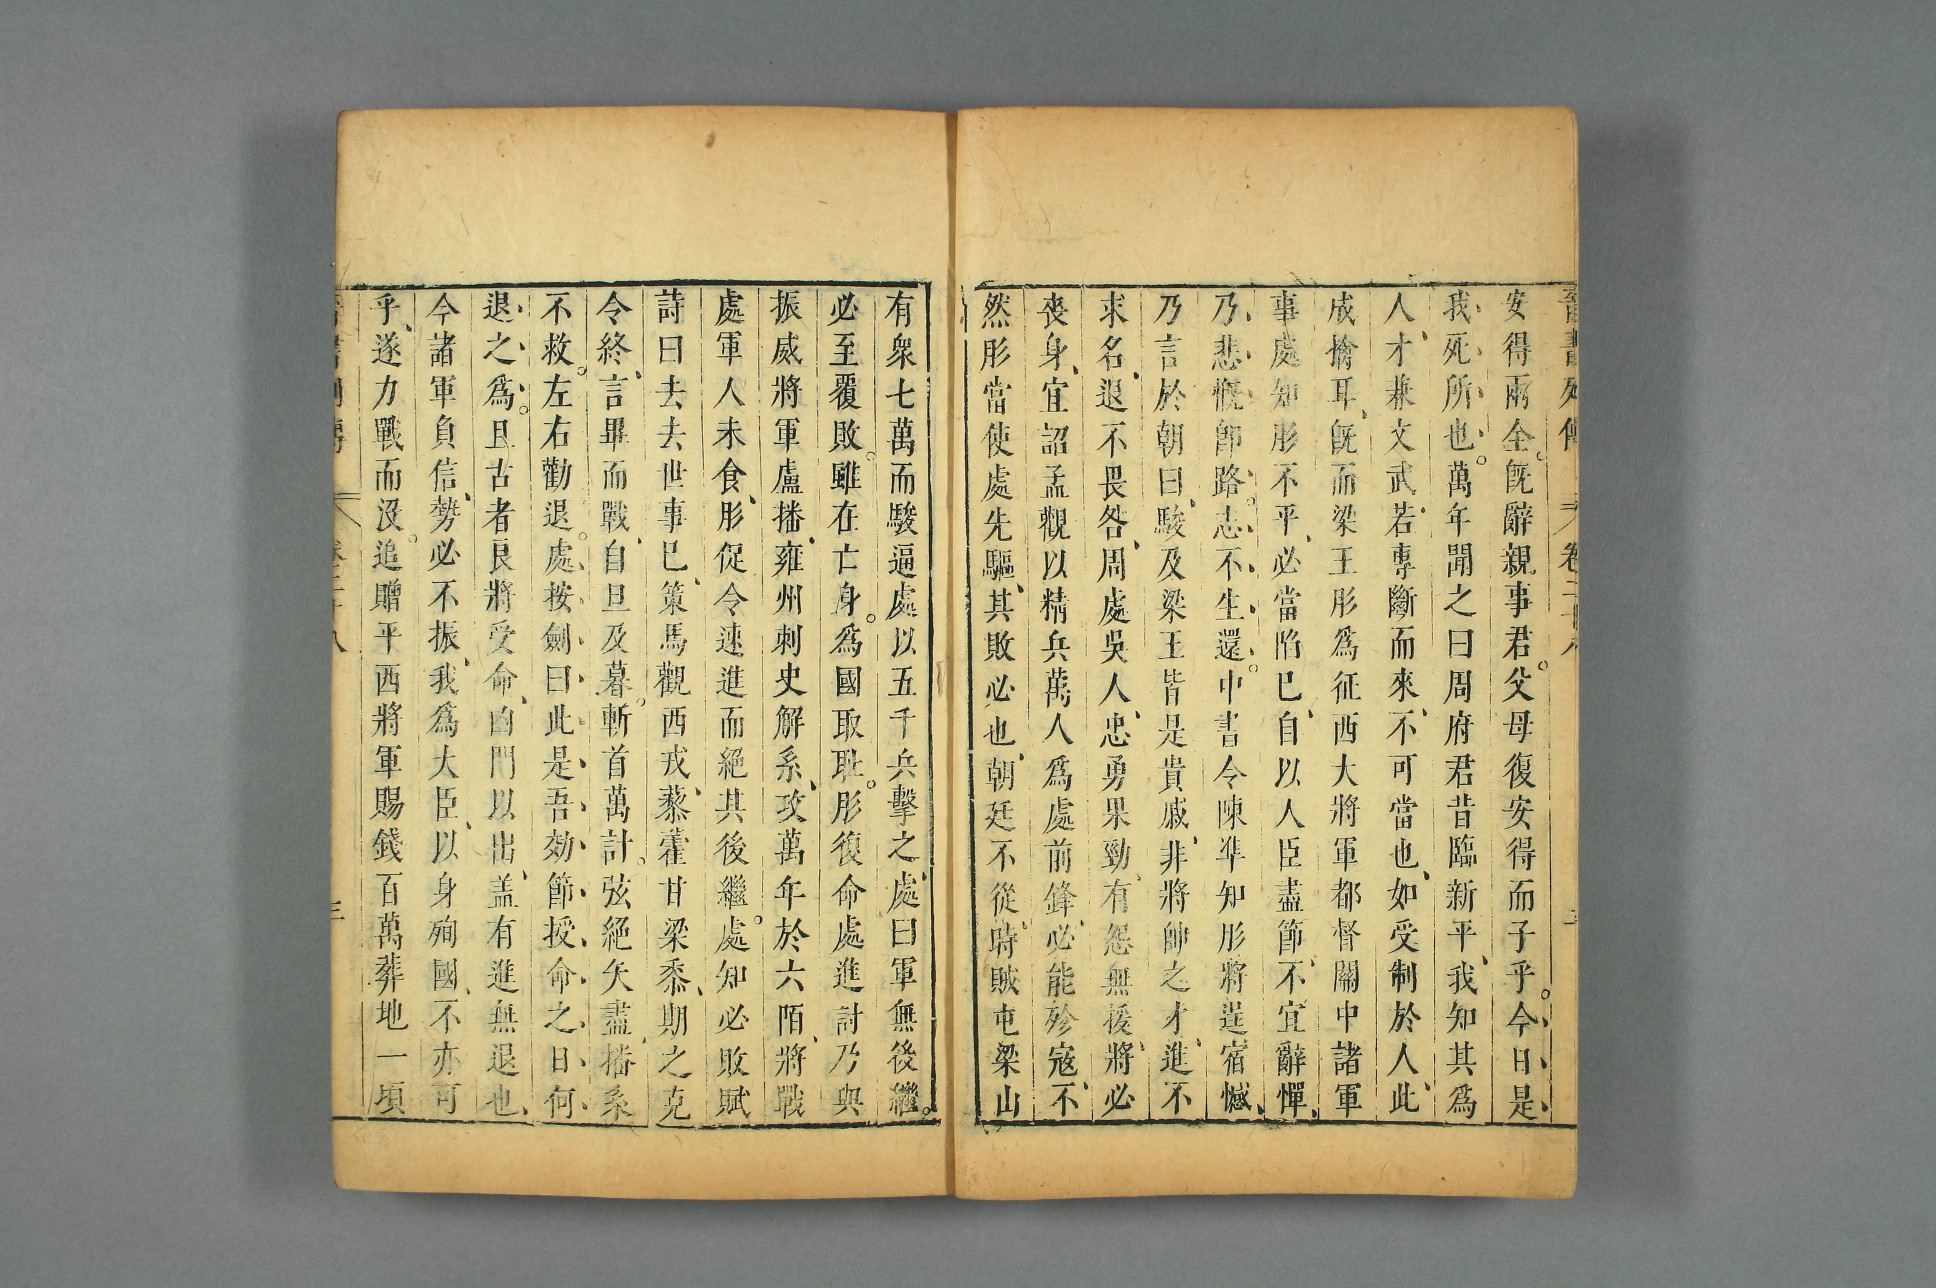 晉書列傳 卷二十八 二
安得兩全。既辭親事君。父母復安得而子乎。今日是
我死所也。萬年聞之曰周府君昔臨新平、我知其為
人、才兼文武、若專斷而來、不可當也、如受制於人、此
成擒耳、既而梁王肜爲征西大將軍都督關中諸軍
事處知肜不平、必當陷巳、自以人臣盡節、不宜辭憚、
乃悲慨卽路。志不生還。中書令陳準知肜將逞宿憾、
乃言於朝曰、駿及梁王皆是貴戚、非將帥之才、進不
求名、退不畏咎、周處吳人、忠勇果勁、有怨無援、將必
喪身、宜詔孟觀以精兵萬人爲處前鋒、必能殄寇、不
然肜當使處先驅、其敗必也、朝廷不從、時賊屯梁山
有衆七萬而駿逼處以五千兵擊之、處曰軍無後繼。
必至覆敗。雖在亡身。爲國取耻。肜復命處進討乃與
振威將軍盧播、雍州刺史解系、攻萬年於六陌、將戰
處軍人未食、肜促令速進而絕其後繼。處知必敗賦
詩曰去去世事巳、策馬觀西戎、藜藿甘梁黍、期之克
令終、言畢而戰、自旦及暮。斬首萬計。弦絕矢盡、播系
不救。左右勸退。處按劍曰此是吾効節授命之日何
退之爲。且古者良將受命、凶門以出、盖有進無退也、
今諸軍負信、勢必不振、我爲大臣、以身殉國、不亦可
乎、遂力戰而沒。追贈平西將軍賜錢百萬葬地一頃
晉書列傳 卷二十八 三